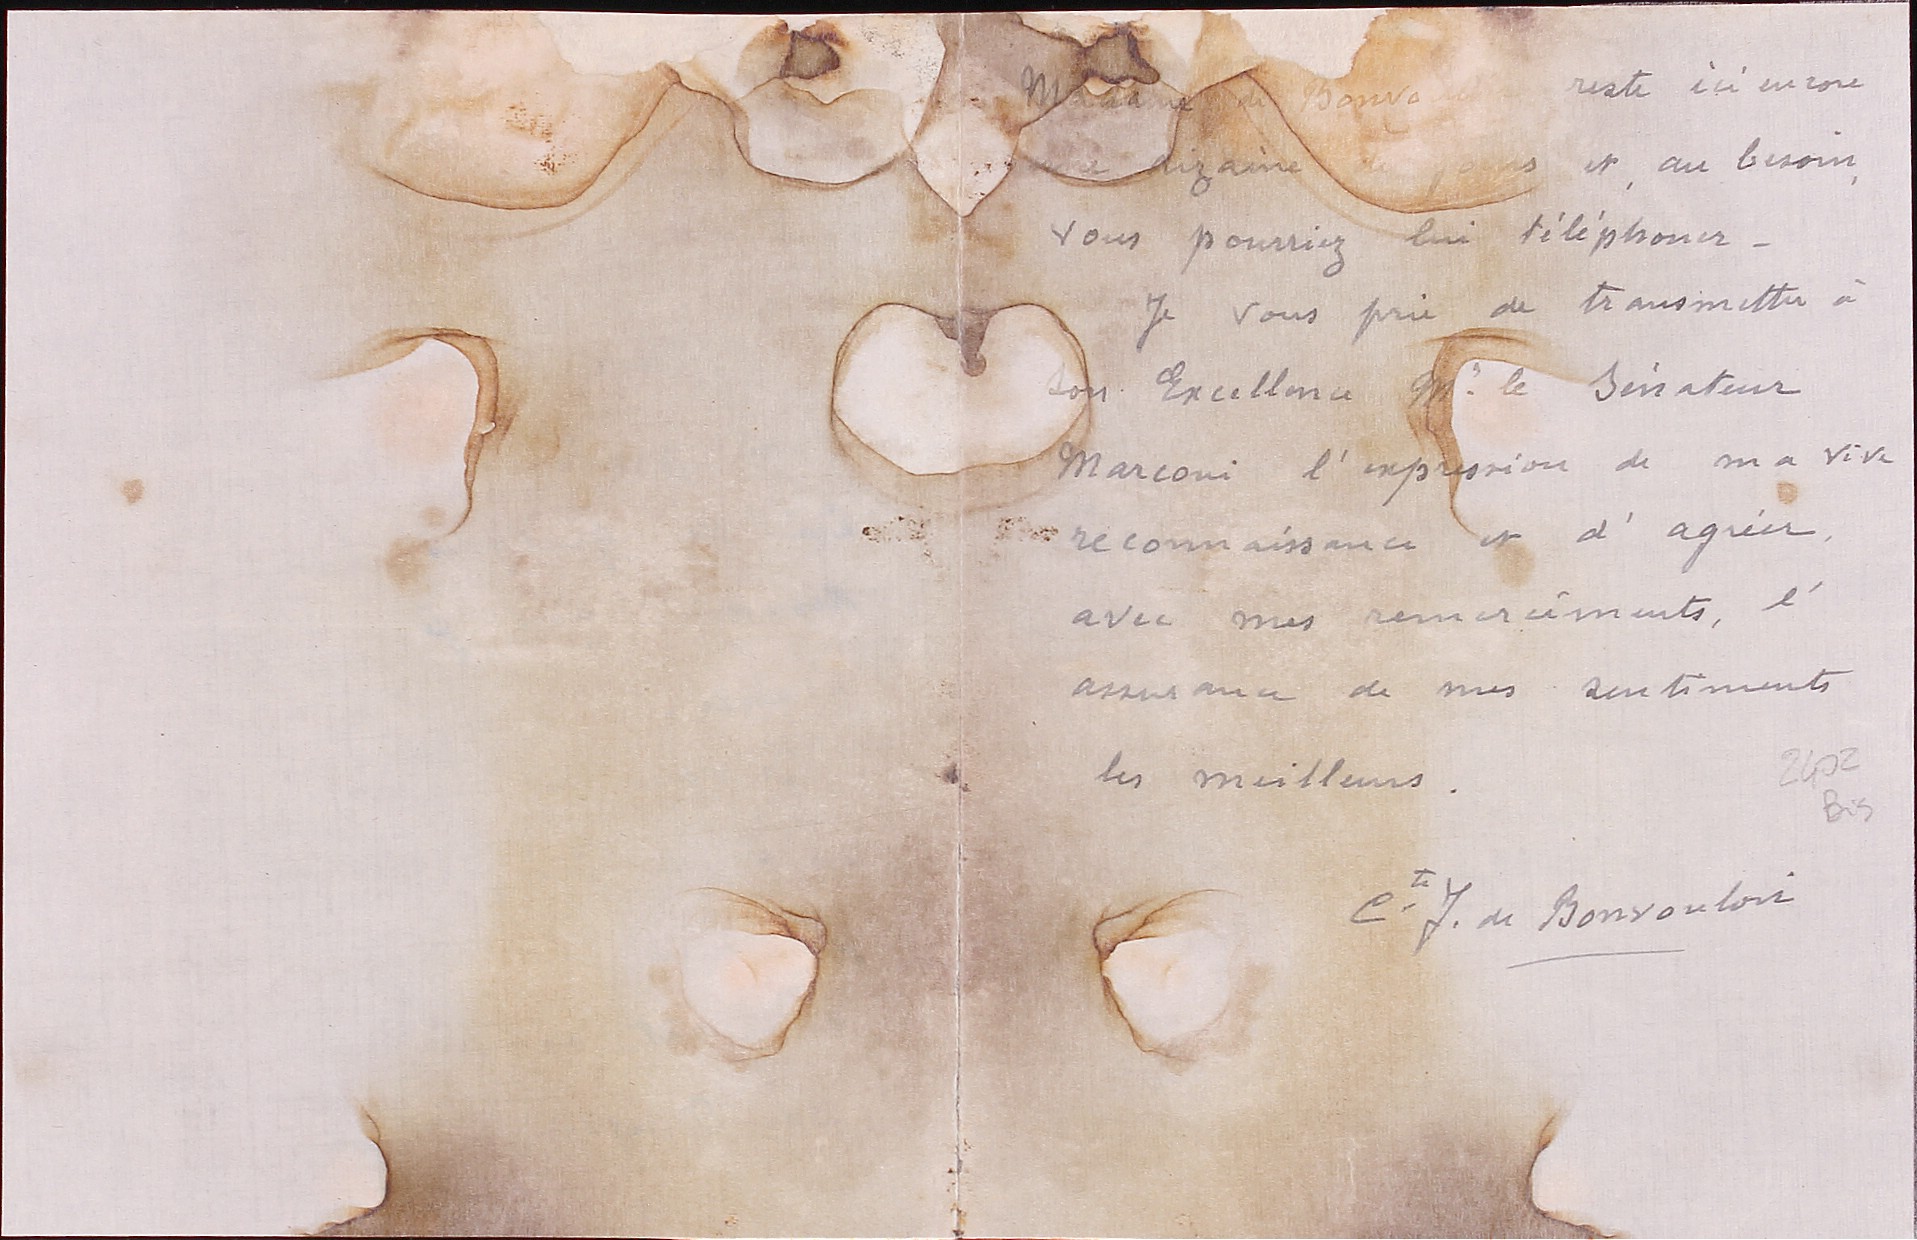 Madame de Bonvouloir reste ici encore
une dizaine de jours et, au besoin,
vous pourriez lui téléphoner –
Je vous prie de transmettre à
Son Excellence Mr. le Sénateur
Marconi l'expression de ma vive
reconnaissance et d'agréer,
avec mes remerciements, l'
assurance de mes sentiments
les meilleurs.
Bis
Cte J. de Bonvouloir